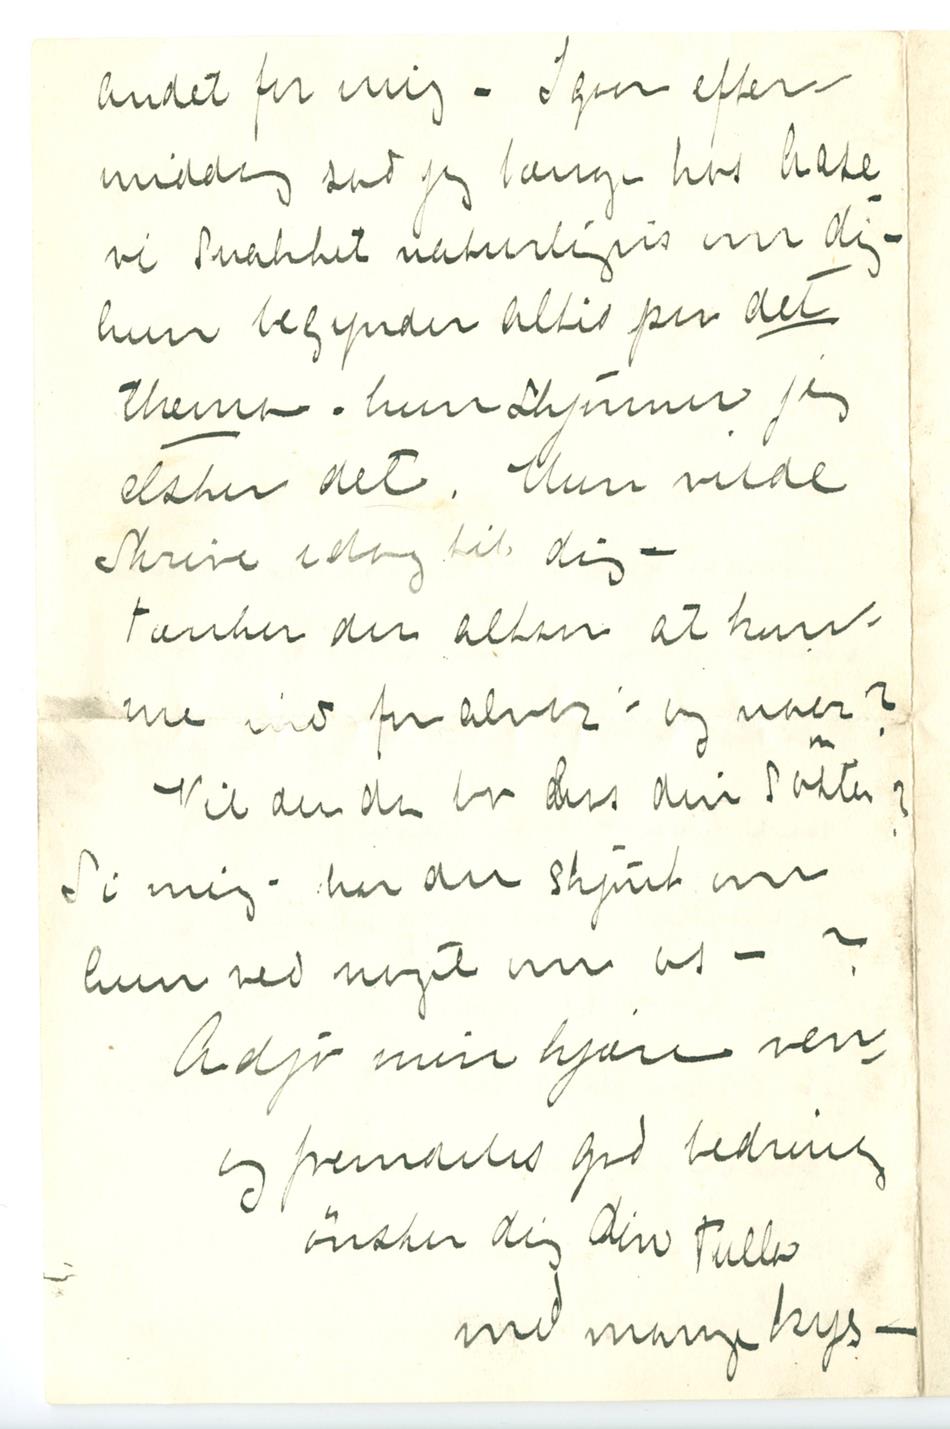 andet for mig - Igaar efter-
middag sad jeg længe hos Aase
vi snakket naturligvis om dig -
hun begynder altid paa det
thema - hun skjønner jeg
elsker det. Hun vilde
skrive idag til dig -
tænker du altsaa at kom-
me ind for alvor - og naar?
Vil du da bo hos din Søster?
Si mig - har du skjønt om
hun ved noget om os - ?
Adjø min kjære ven,
og fremdeles god bedring
ønsker dig din Tulla
med mange kys -